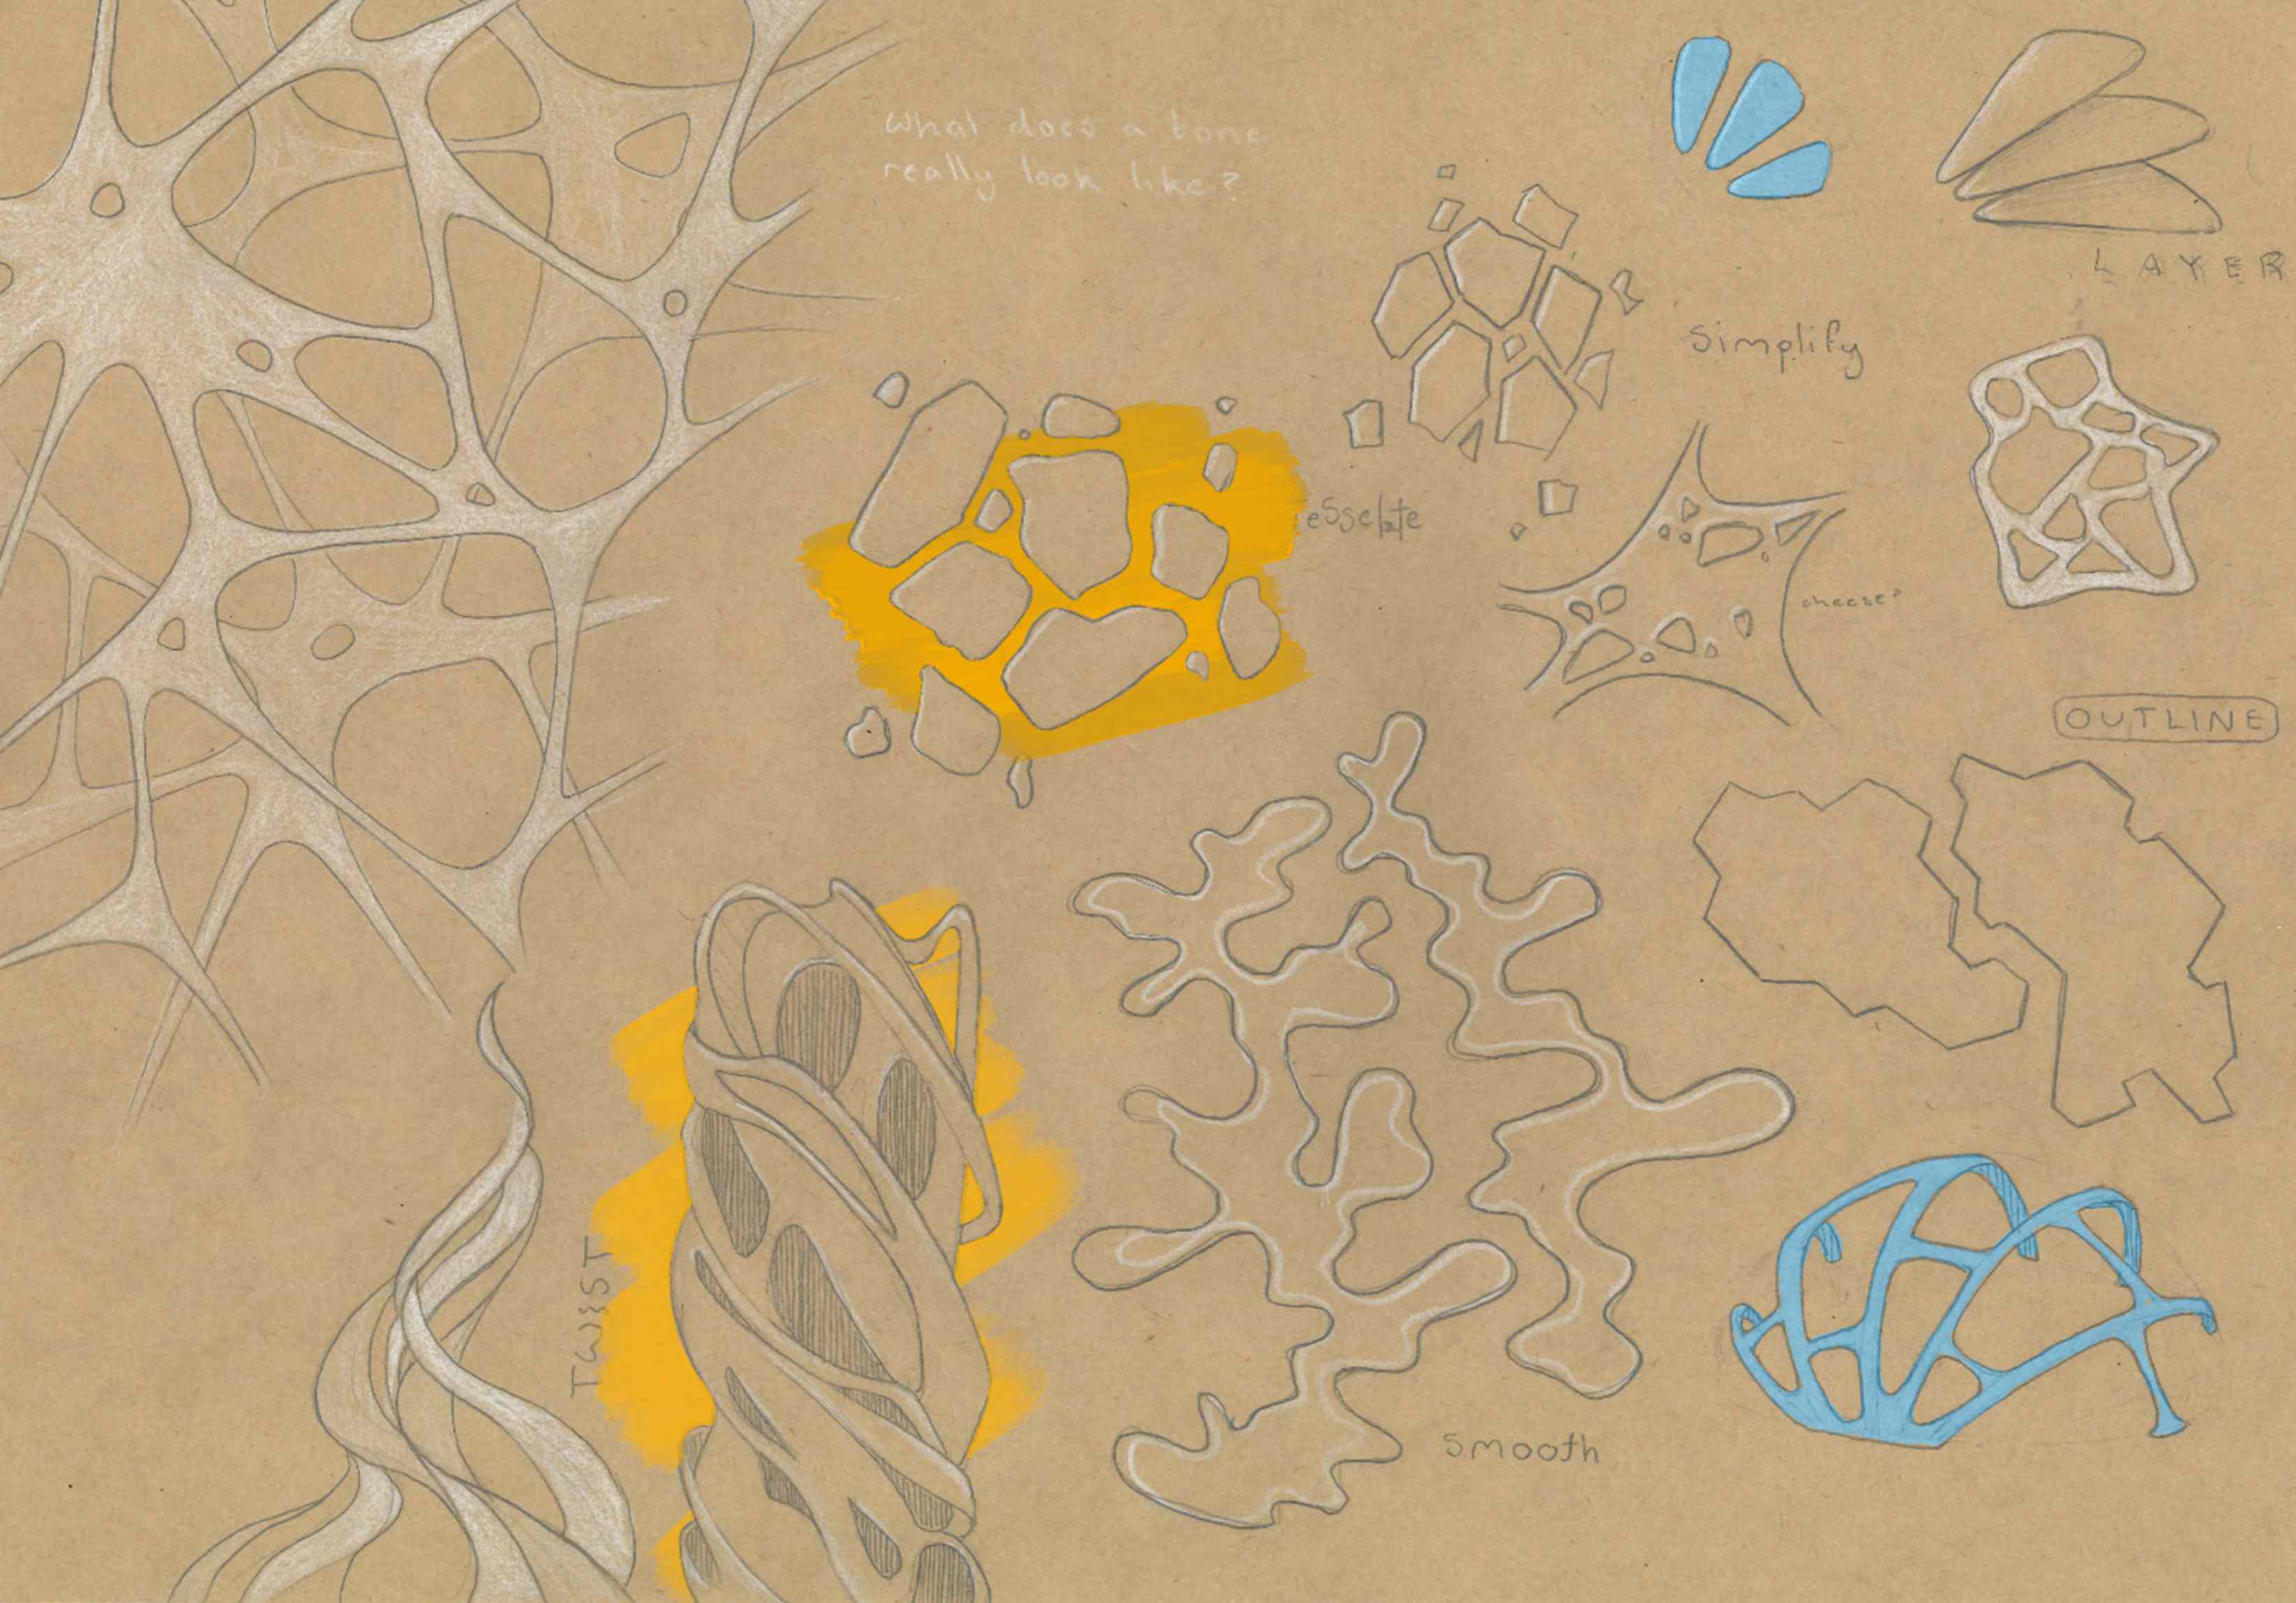 What does a bone
really look like?
LAYER
simplify
esselate
cheese?
OUTLINE
TWIST
smooth